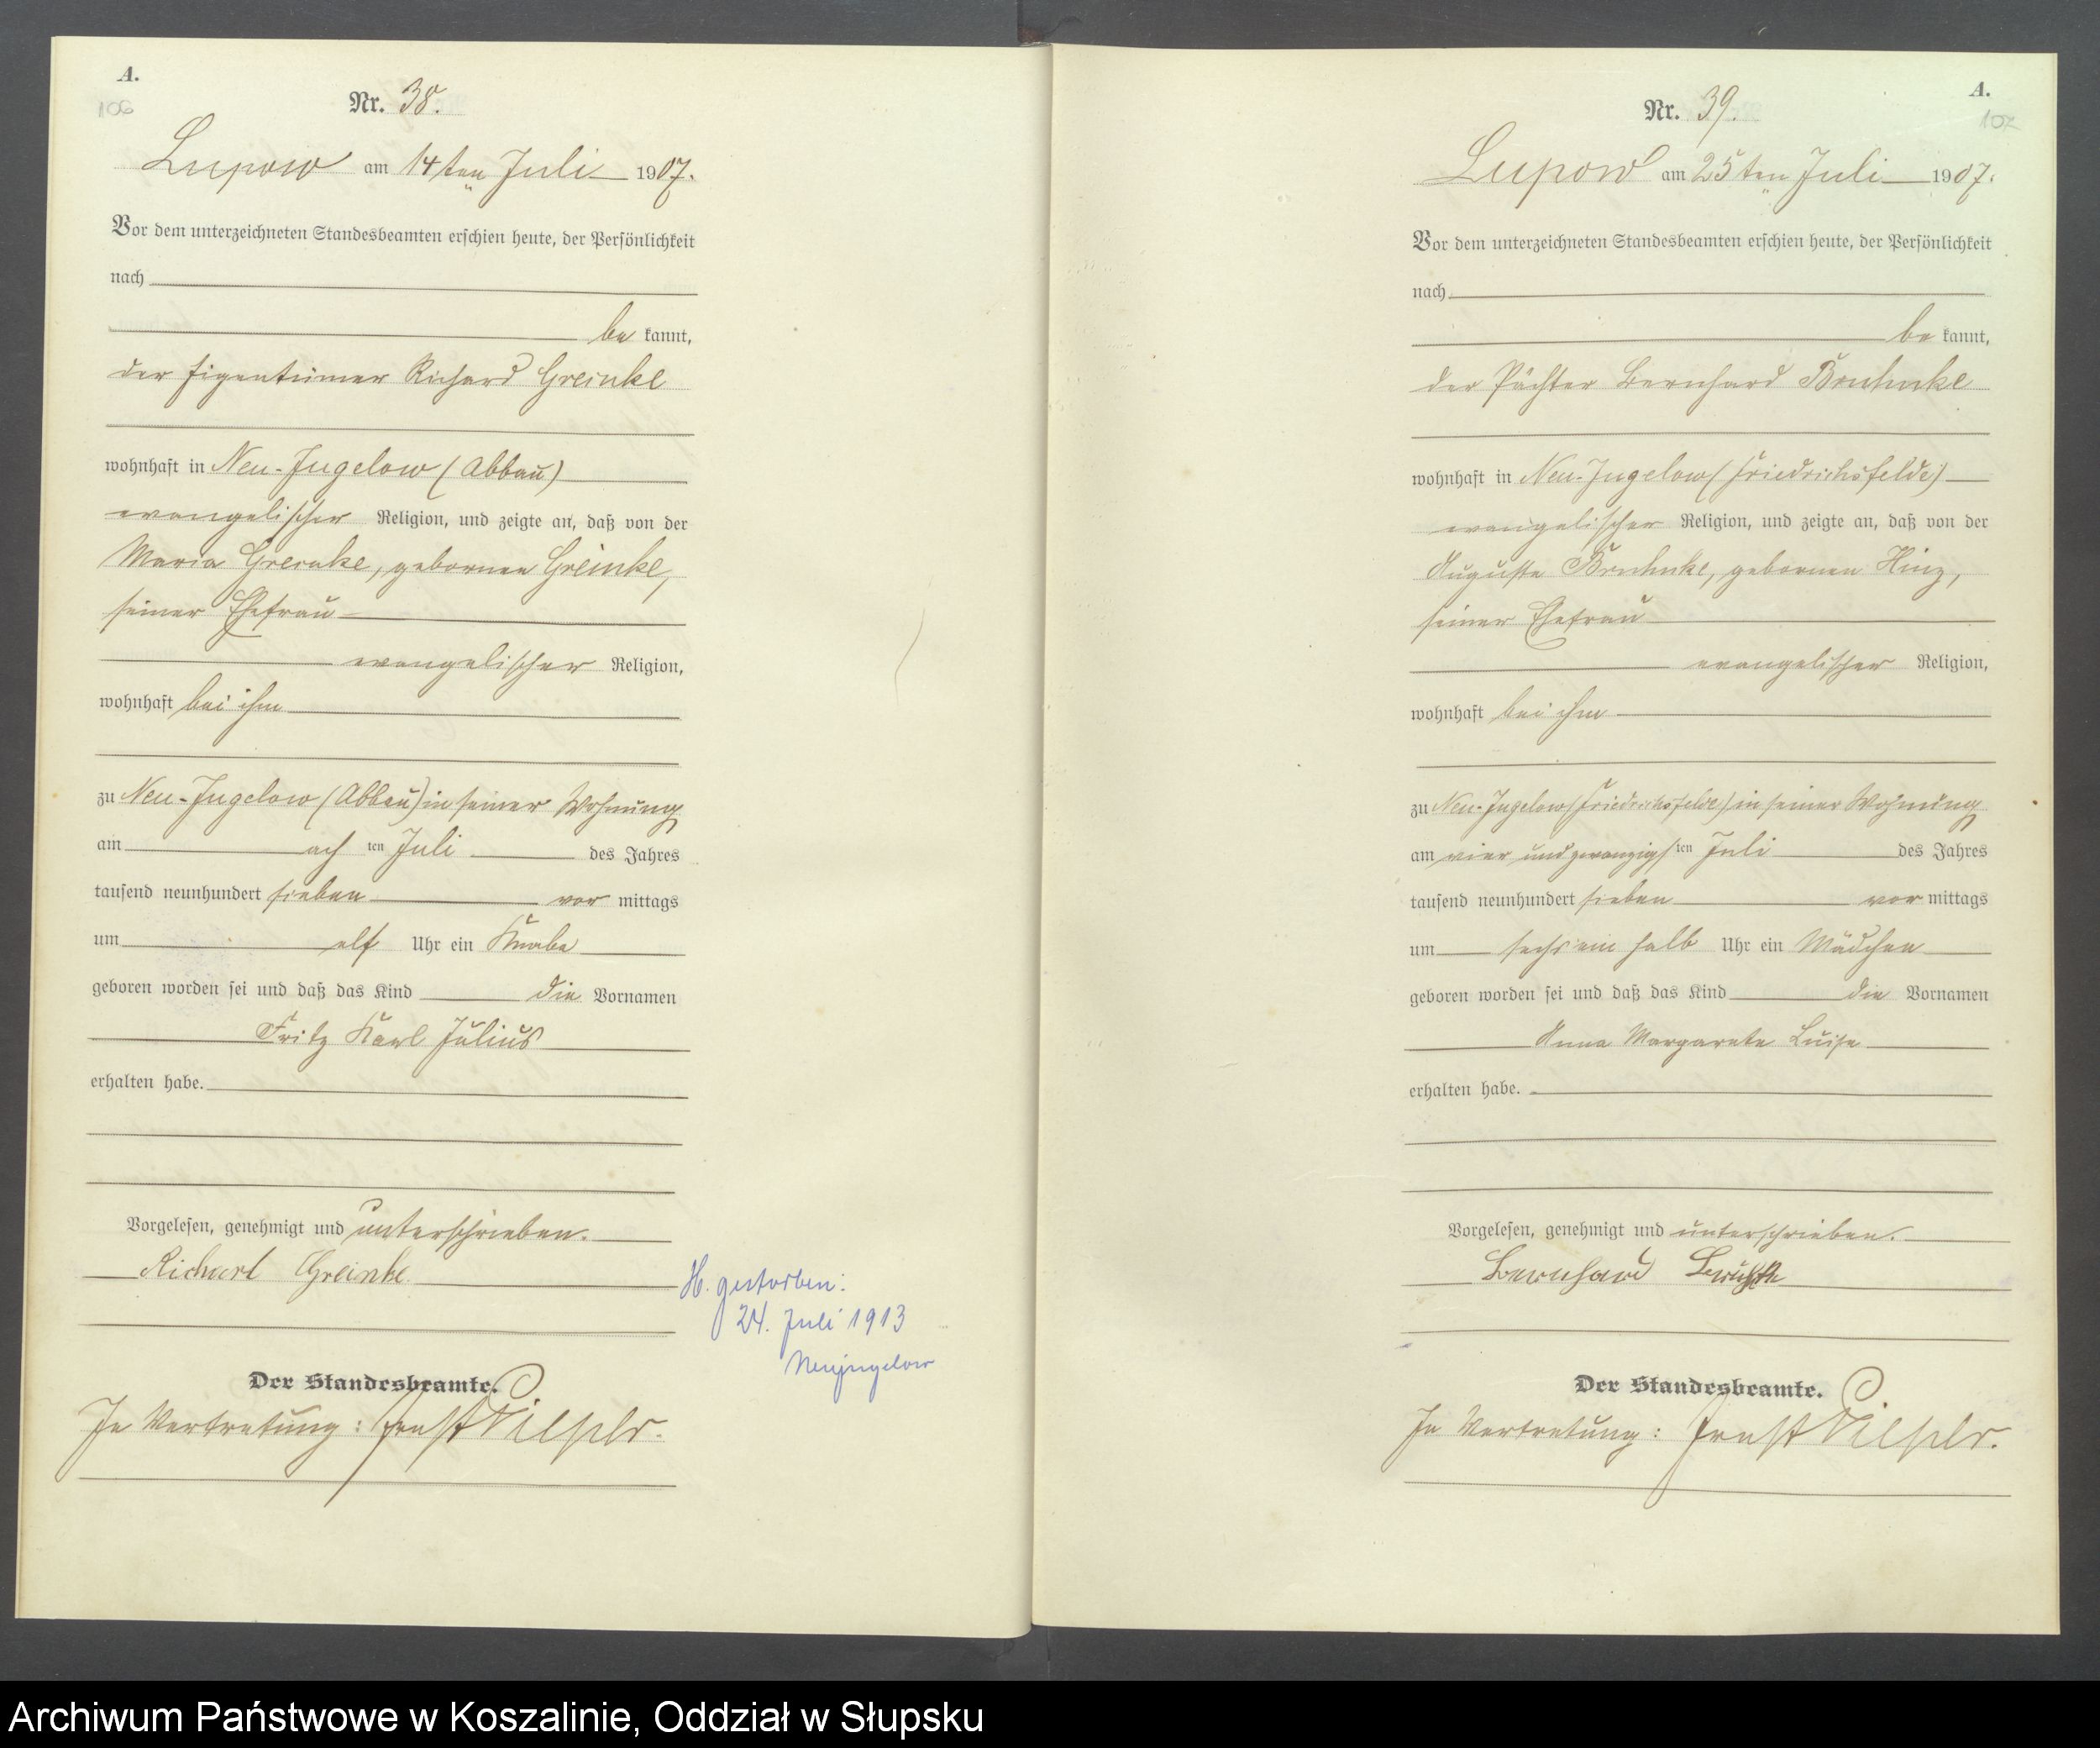 A.
106
Nr. 38.
Lupow am 14ten Juli 1907.
Vor dem unterzeichneten Standesbeamten erschien heute, der Persönlichkeit
nach
be kannt,
der Eigentümer Richard Greinke
wohnhaft in Neu-Jugelow (Abbau)
evangelischer Religion, und zeigte an, daß von der
Maria Greinke, geborenen Greinke,
seiner Ehefrau
evangelischer Religion,
wohnhaft bei ihm
zu Neu-Jugelow (Abbau) in seiner Wohnung
am ach ten Juli des Jahres
tausend neunhundert sieben vor mittags
um elf Uhr ein Knabe
geboren worden sei und daß das Kind die Vornamen
Fritz Karl Julius
erhalten habe.
Vorgelesen, genehmigt und unterschrieben.
Richard Greinke
H. gestorben:
24. Juli 1913
Neujugelow
Der Standesbeamte.
In Vertretung: Ernst
A.
107
Nr. 39.
Lupow am 25ten Juli 1907.
Vor dem unterzeichneten Standesbeamten erschien heute, der Persönlichkeit
nach
be kannt,
der Pächter Bernhard Bruhnke
wohnhaft in Neu-Jugelow (Friedrichsfelde)
evangelischer Religion, und zeigte an, daß von der
Auguste Bruhnke, geborenen Hinz,
seiner Ehefrau
evangelischer Religion,
wohnhaft bei ihm
zu Neu-Jugelow (Friedrichsfelde) in seiner Wohnung
am vier und zwanzigs ten Juli des Jahres
tausend neunhundert sieben vor mittags
um sechs ein halb Uhr ein Mädchen
geboren worden sei und daß das Kind die Vornamen
Anna Margarete Luise
erhalten habe.
Vorgelesen, genehmigt und unterschrieben.
Bernhard
Der Standesbeamte.
In Vertretung: Ernst
Archiwum Państwowe w Koszalinie, Oddział w Słupsku